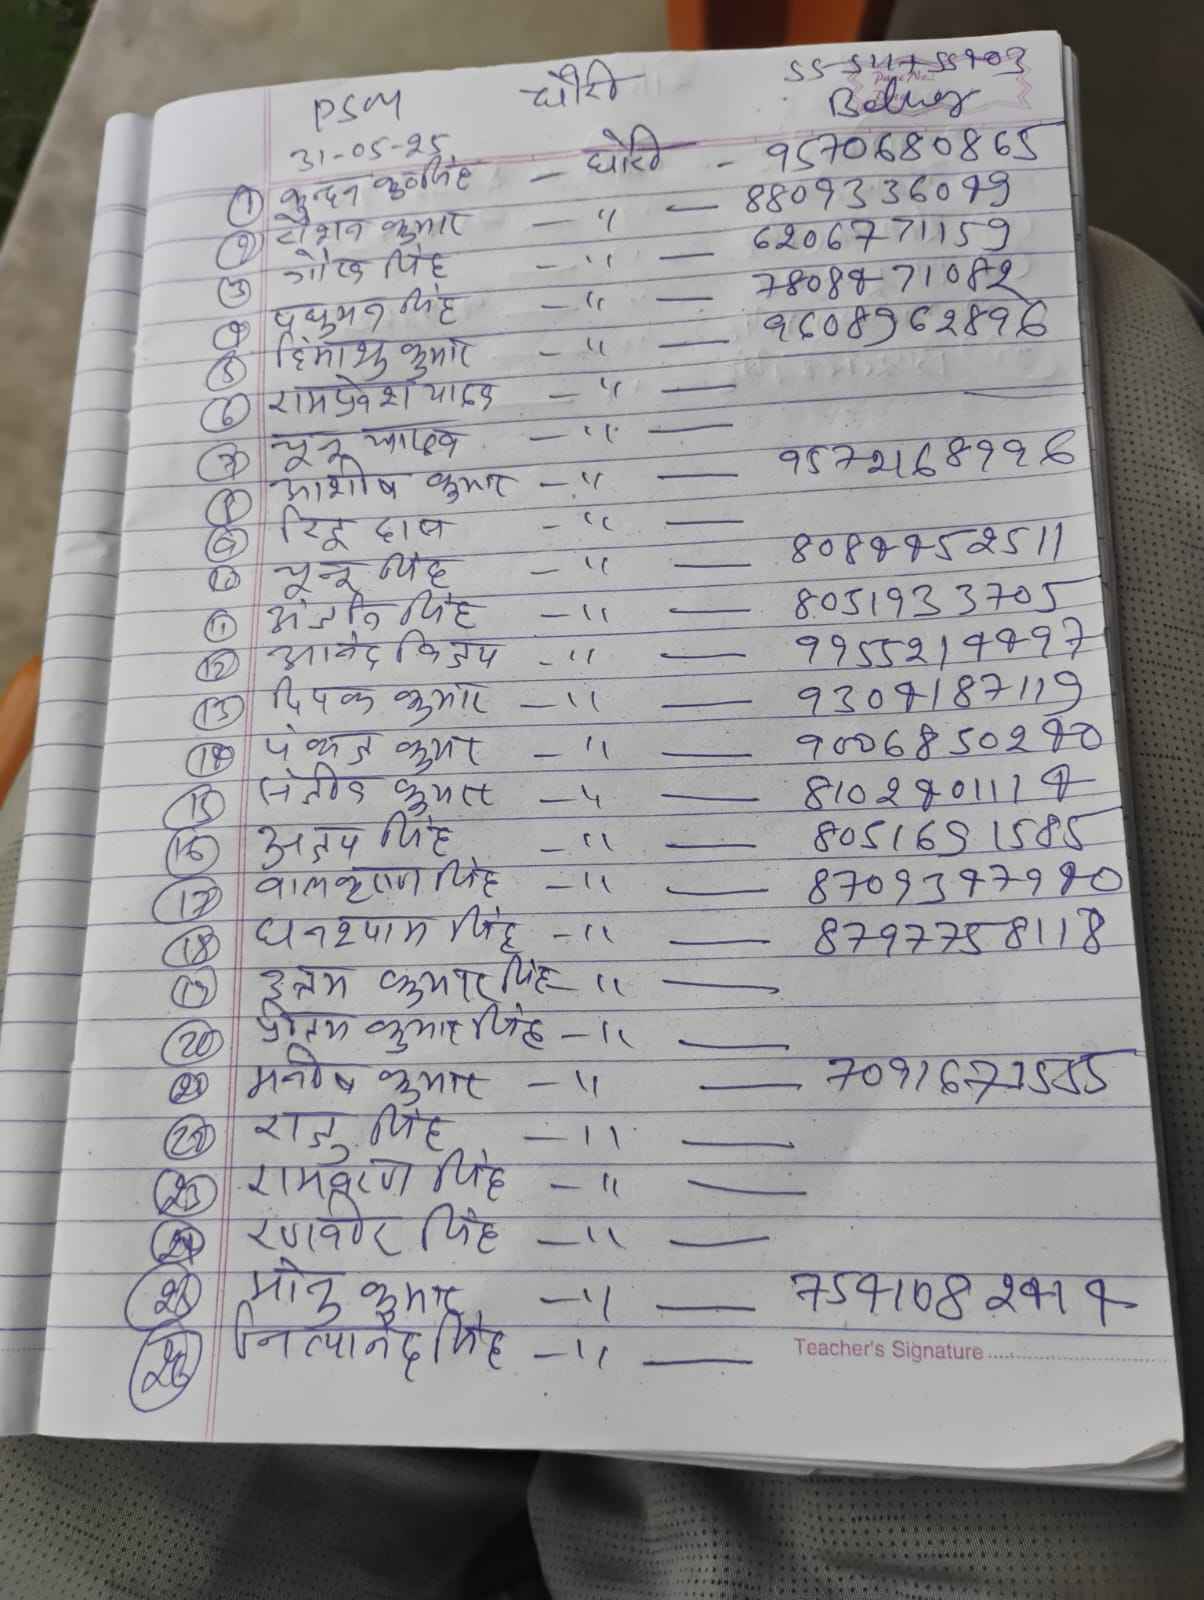 PSM घोरी
31-05-25
① कुन्दन कु० सिंह - घोरी - 9570680865
② रौशन कुमार - " - 8809336049
③ सिंह - " - 6206771159
④ प्रधुमन सिंह - " - 7808471082
⑤ हिमांशु कुमार - " - 9608962896
⑥ रामप्रवेश यादव - " -
⑦ चून्नू यादव - " -
⑧ आशीष कुमार - " - 9572168996
⑨ रितू दास - " -
⑩ चून्नू सिंह - " - 8084452511
⑪ सिंह - " - 8051933705
⑫ आनंद विजय - " - 9955214497
⑬ दिपक कुमार - " - 9304187119
⑭ पंकज कुमार - " - 9006850240
⑮ संजीव कुमार - " - 8102401114
⑯ अजय सिंह - " - 8051691585
⑰ सिंह - " - 8709347940
⑱ घनश्याम सिंह - " - 8797758118
⑲ उत्तम कुमार सिंह - " -
⑳ प्रीतम कुमार सिंह - " -
㉑ मनीष कुमार - " - 7091671555
㉒ राजु सिंह - " -
㉓ सिंह - " -
㉔ रणवीर सिंह - " -
㉕ मोनु कुमार - " - 7541082414
㉖ नित्यानंद सिंह - " -
Teacher's Signature